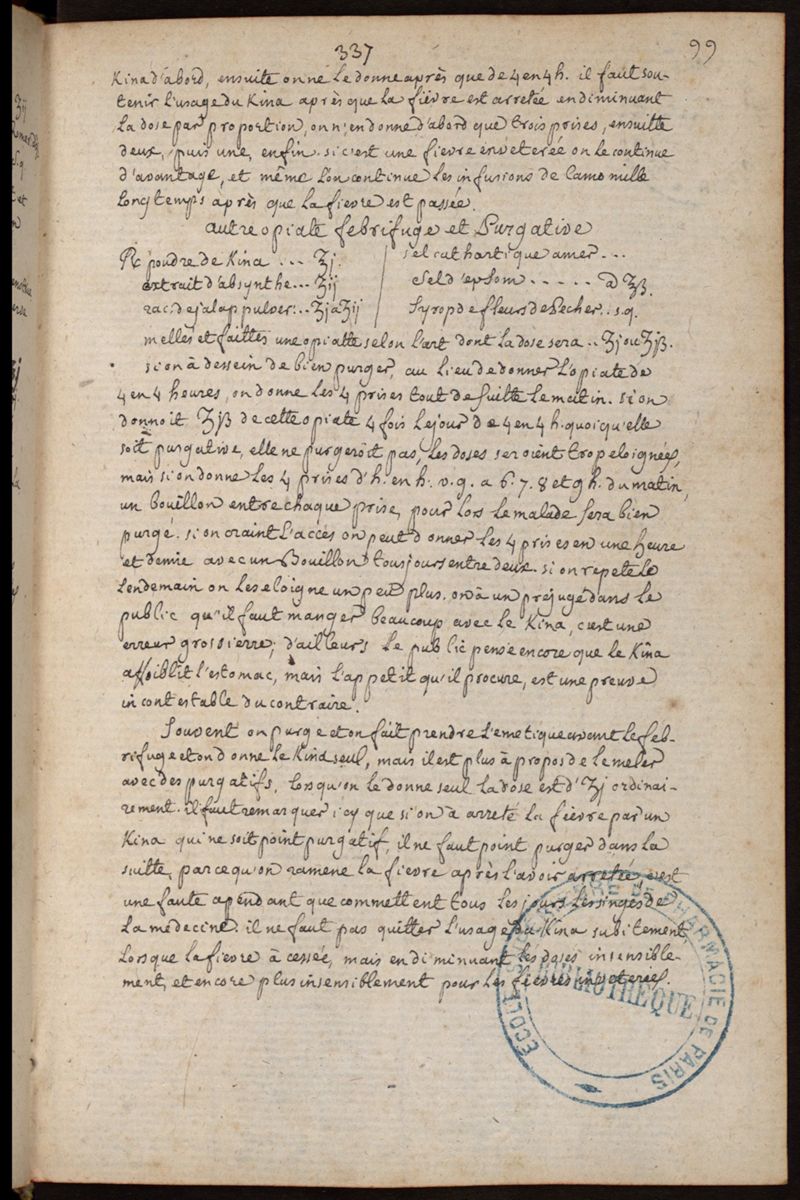 337
99
Kina d'abord, ensuite on ne le donne après que de 4 en 4 h. il faut sou-
tenir l'usage du Kina après que la fièvre est arretée en diminuant
la dose par proportion, on n'en donne d'abord que trois prises, ensuitte
deux, puis une, enfin. si c'est une fievre enveterée on le continue
d'avantage, et même l'on continue les infusions de Camomille
longtemps après que la fievre est passée.
autre opiate febrifuge et Purgative
℞ poudre de Kina ... ʒj.
extrait d'absynthe ... ʒij
rac. de jalap pulver: .. ʒj a ʒij
sel cathartique amer ...
Sel d'epsom ..... a ʒß.
Syrop de fleurs de Pecher .. s.q.
melles et faittes une opiatte selon l'art dont la dose sera .. ʒj ou ʒjß.
si on à dessein de bien purger, au lieu de donner l'opiate de
4 en 4 heures, on donne les 4 prises tout de suitte le matin. si on
donnoit ʒjß de cette opiate 4 fois le jour de 4 en 4 h. quoi qu'elle
soit purgative, elle ne purgeroit pas, les doses seroient trop eloignées,
mais si on donne les 4 prises d'h. en h. v.g. a 6. 7. 8 et 9 h. du matin,
un bouillon entre chaque prise, pour lors le malade sera bien
purgé. si on craint l'accès on peut donner les 4 prises en une heure
et demie avec un Bouillon tousjours entre deux. si on repete le
lendemain on les eloigne un peu plus. on à un préjugé dans le
public qu'il faut manger beaucoup avec le Kina, c'est une
erreur grossierre; d'ailleurs le public pense encore que le Kina
affoiblit l'estomac, mais l'appetit qu'il procure, est une preuve
incontestable du contraire.
Souvent on purge et on fait prendre l'emetique avant le feb-
rifuge et on donne le Kina seul, mais il est plus à propos de le meler
avec des purgatifs. lorsqu'on le donne seul la dose est d'ʒj ordinai-
rement. il faut remarquer icy que si on a arreté la fièvre par un
Kina qui ne soit point purgatif, il ne faut point purger dans la
suitte, parce qu'on ramene la fievre après l'avoir arretée, c'est
une faute apendant que commettent tous les jours les singes de
la médecine. il ne faut pas quitter l'usage du Kina subitement
lorsque la fievre à cessée, mais en diminuant les doses insensible-
ment, et encore plus insensiblement pour les fievres inveterées.
ECOLE SUPERIEURE DE PHARMACIE DE PARIS
BIBLIOTHEQUE